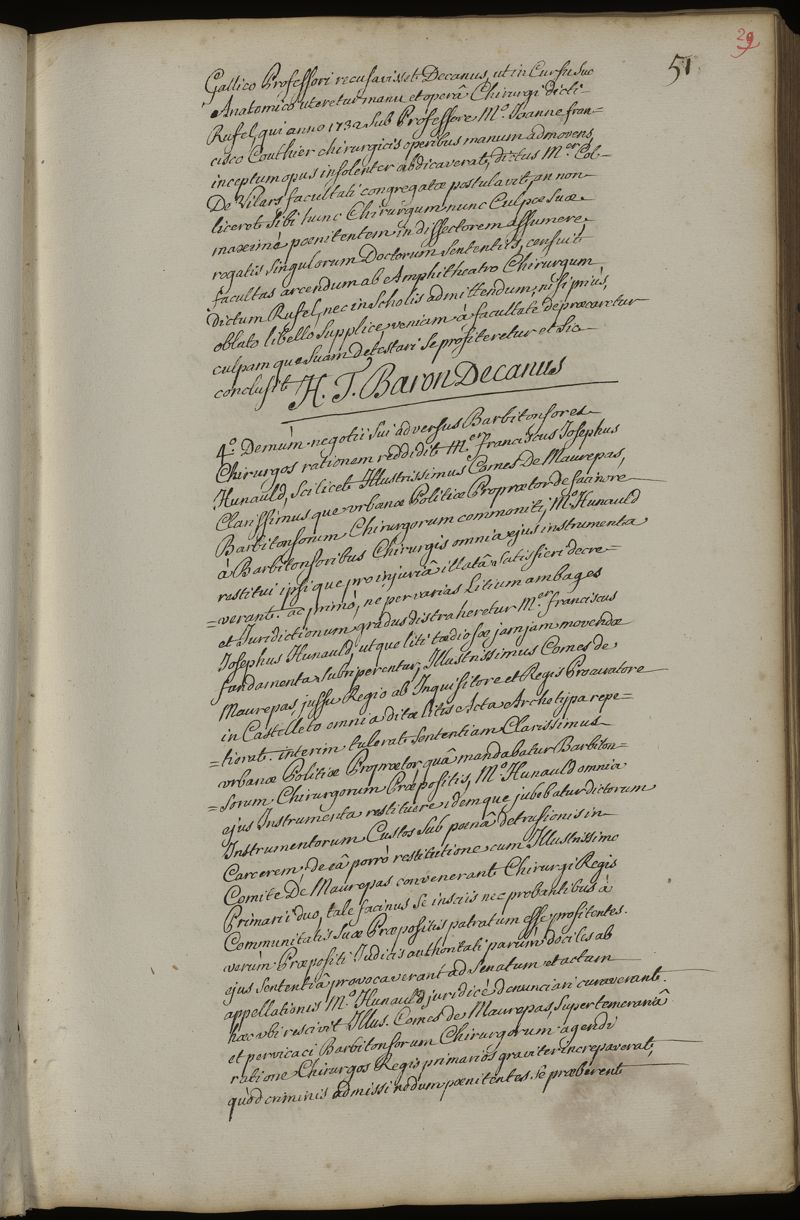 29
51
Gallico Professori recusavisset Decanus, ut in Cursu suo
Anatomico uteretur manu et operâ Chirurgi dicti
Rufel, qui anno 1732 sub Professore M.º Joanne fran=
cisco Couthier chirurgicis operibus manum admovens,
inceptum opus insolenter abdicaverat, dictus M.er Col-
De Vilars facultati congregatæ postulavit, an non
liceret sibi hunc Chirurgum nunc Culpæ suæ
maximè pœnitentem in dissectorem assumere
rogatis singulorum Doctorum sententiis, censuit
facultas arcendum ab Amphitheatro Chirurgum
dictum Rufel, nec in scholis admittendum, nisi priùs,
oblato libello supplice, veniam à facultate deprecaretur
culpam que suam detestari se profiteretur et sic
conclusit H. T. Baron Decanus
4.º Demùm negotii sui adversus Barbitonsores
Chirurgos rationem reddidit M.er franciscus Josephus
Hunauld, scilicet Illustrissimus Comes De Maurepas,
Clarissimus que urbanæ Politiæ Proprætor de facinore
Barbitonsorum Chirurgorum commoniti, M.º Hunauld
à Barbitonsoribus Chirurgis omnia ejus instrumenta
restitui ipsique pro injuriâ illatâ satisfieri decre=
=verant. ac primò, ne per varias Litium ambages
et Juridictionum gradus distraheretur M.er franciscus
Josephus Hunauld, utque liti tædiosæ jamjam movendæ
fundamenta subriperentur, Illustrissimus Comes de
Maurepas, jussu Regio ab Inquisitore et Regis Procuratore
in Castelleto omnia ditæ litis Acta Archetypa repe=
=tierat. interim tulerat sententiam Clarissimus
urbanæ Politiæ Proprætor, quâ mandabatur Barbiton=
=sorum Chirurgorum Præpositis, M.º Hunauld omnia
ejus Instrumenta restituere idemque jubebatur dictorum
Instrumentorum Custos sub pœnâ detrusionis in
Carcerem. de eâ porrò restitutione cum Illustrissimo
Comite De Maurepas convenerant Chirurgi Regis
Primarii duo, tale facinus se insciis nec probantibus à
Communitatis suæ Præpositis patratum esse profitentes.
verùm Præpositi Judicis authoritati parùm dociles ab
ejus sententiâ provocaverant ad Senatum et actum
appellationis M.º Hunauld juridicè denunciari curaverant.
hæc ubi rescivit Illus. Comes de Maurepas super temerariâ
et pervicaci Barbitonsorum Chirurgorum agendi
ratione Chirurgos Regis primarios graviter increpaverat,
quòd criminis admissi nedum pœnitentes se præberent